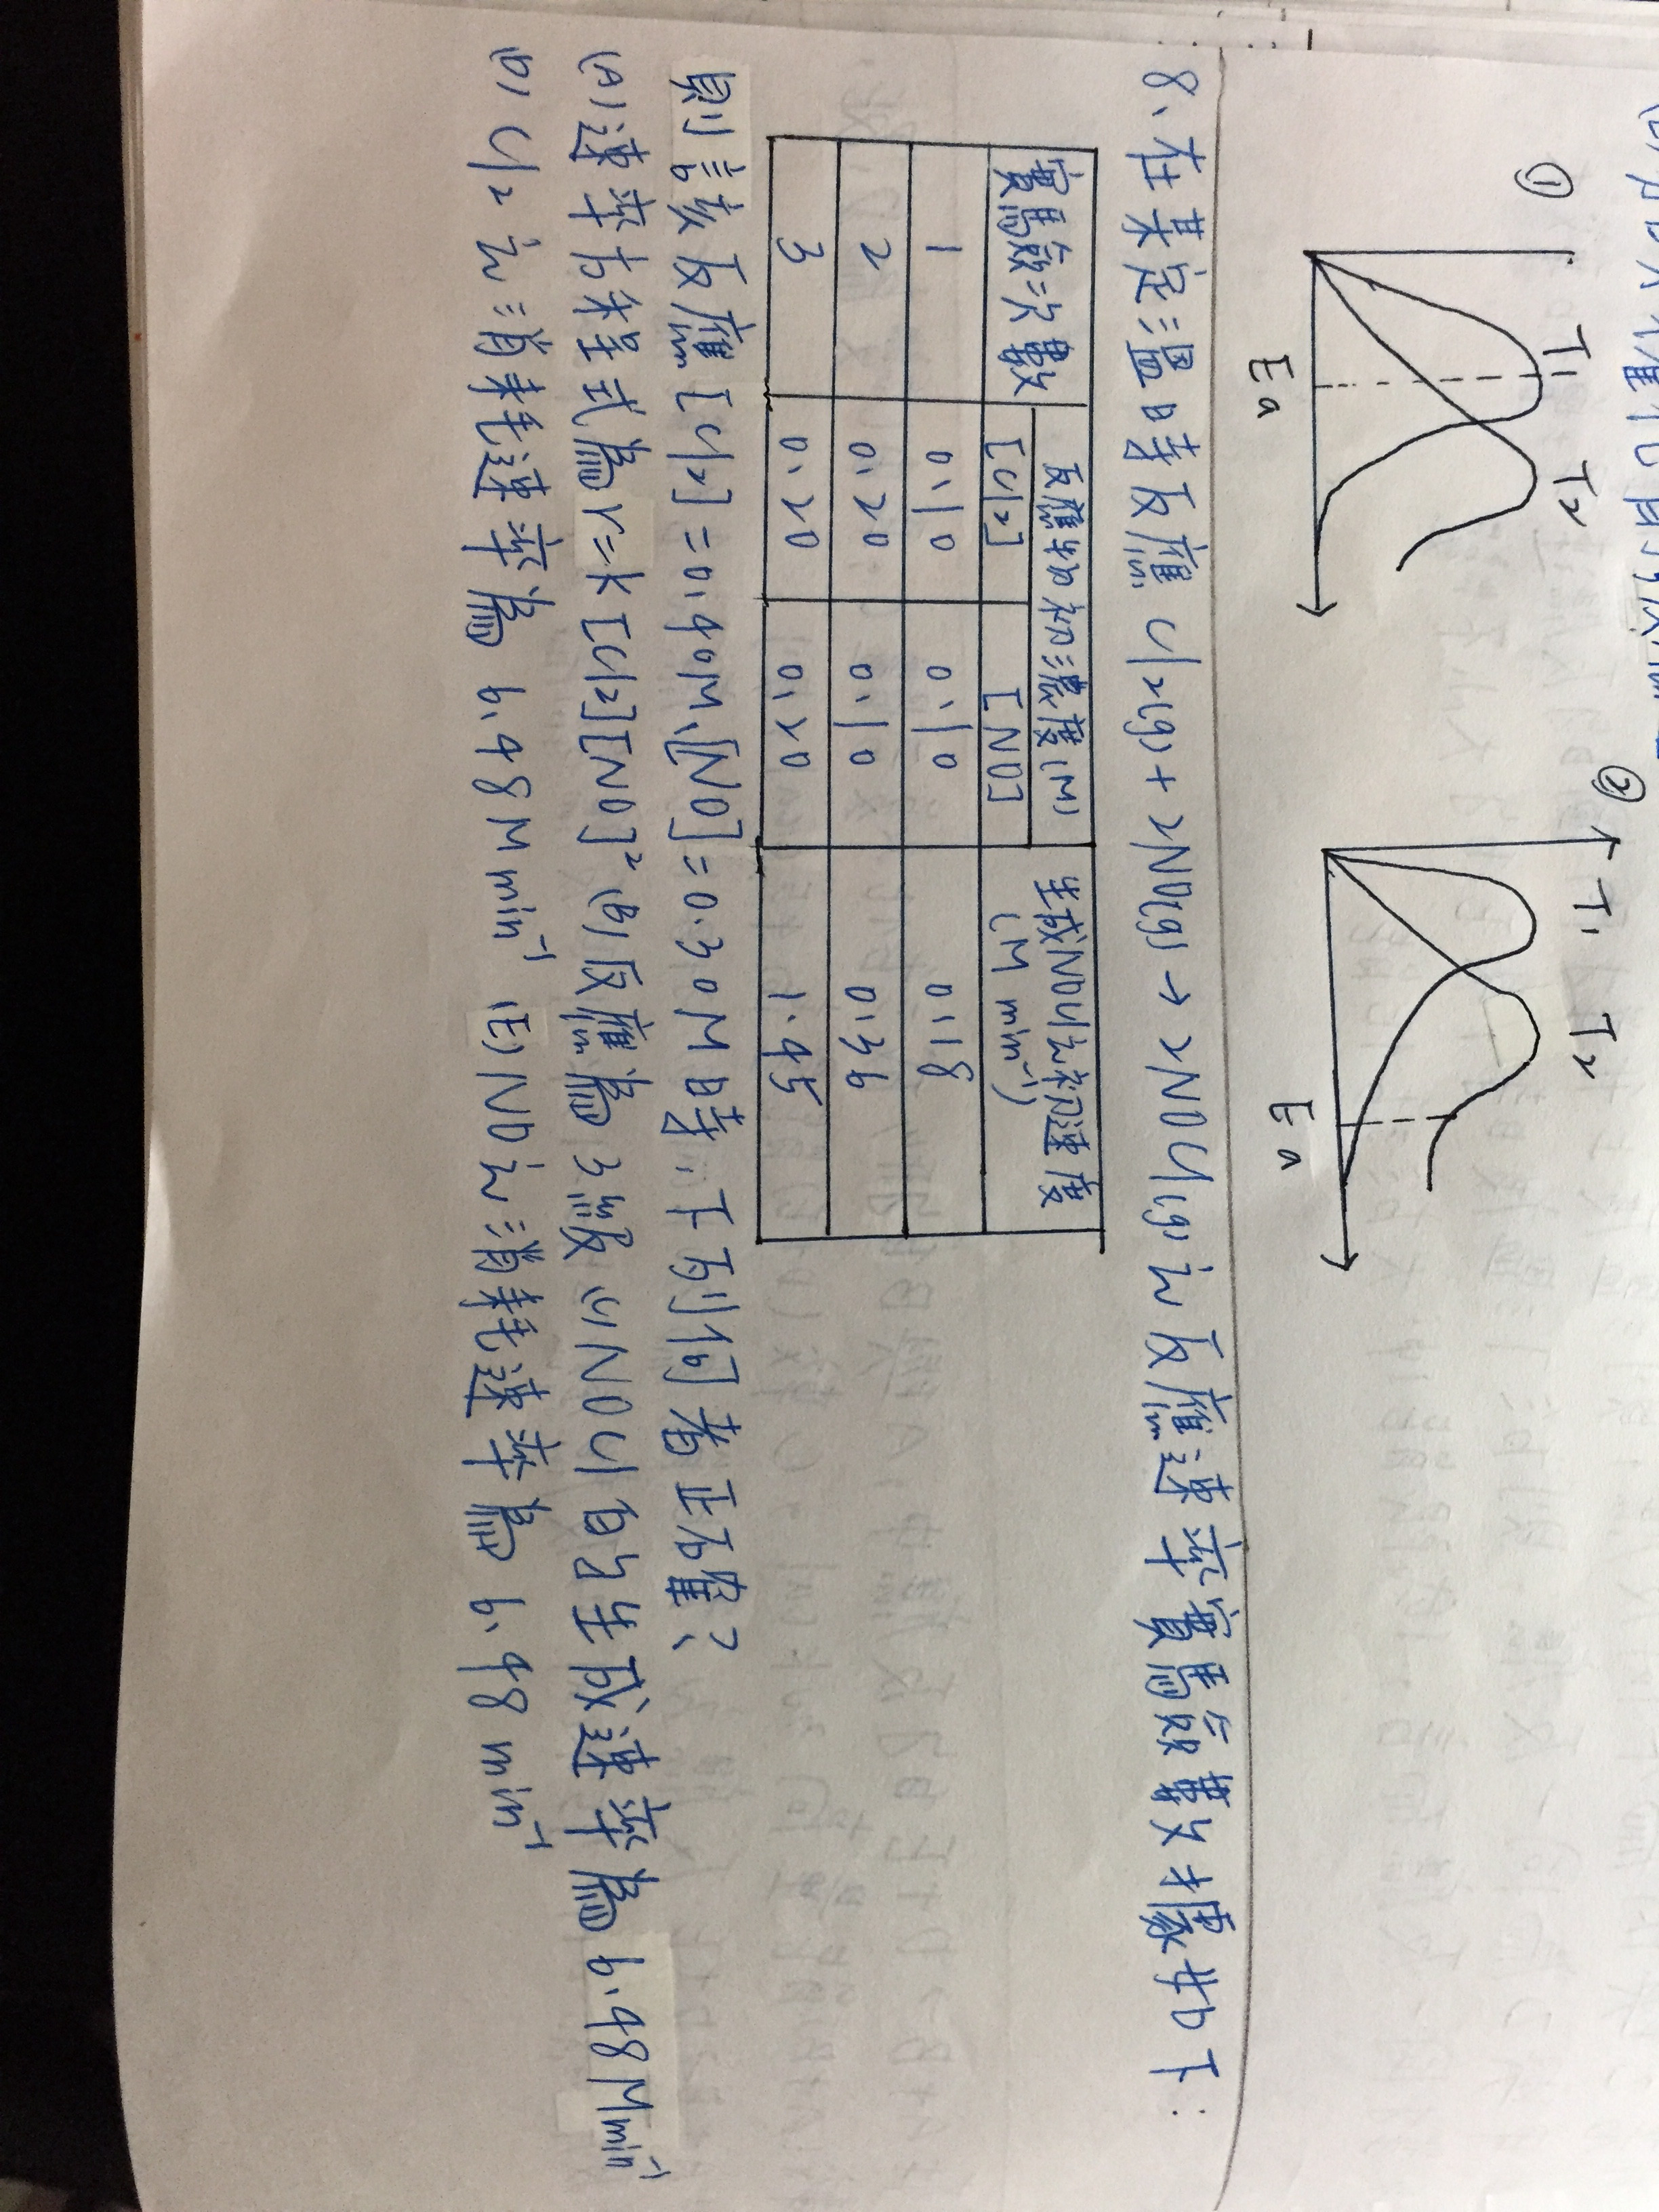 ①
T1
T2
Ea
②
T1
T2
Ea
8、在某定溫時反應 Cl2(g) + 2NO(g) → 2NOCl(g)之反應速率實驗數據如下:
實驗次數
反應始的濃度(M)
生成NOCl之初速度
(M min⁻¹)
[Cl2]
[NO]
1
0.10
0.10
0.18
2
0.20
0.10
0.36
3
0.20
0.20
1.45
則該反應[Cl2]=0.40M、[NO]=0.30M時,下列何者正確?
(A)速率方程式為r=k[Cl2][NO]² (B)反應為3級 (C)NOCl的生成速率為6.48Mmin⁻¹
(D)Cl2之消耗速率為6.48Mmin⁻¹ (E)NO之消耗速率為6.48min⁻¹